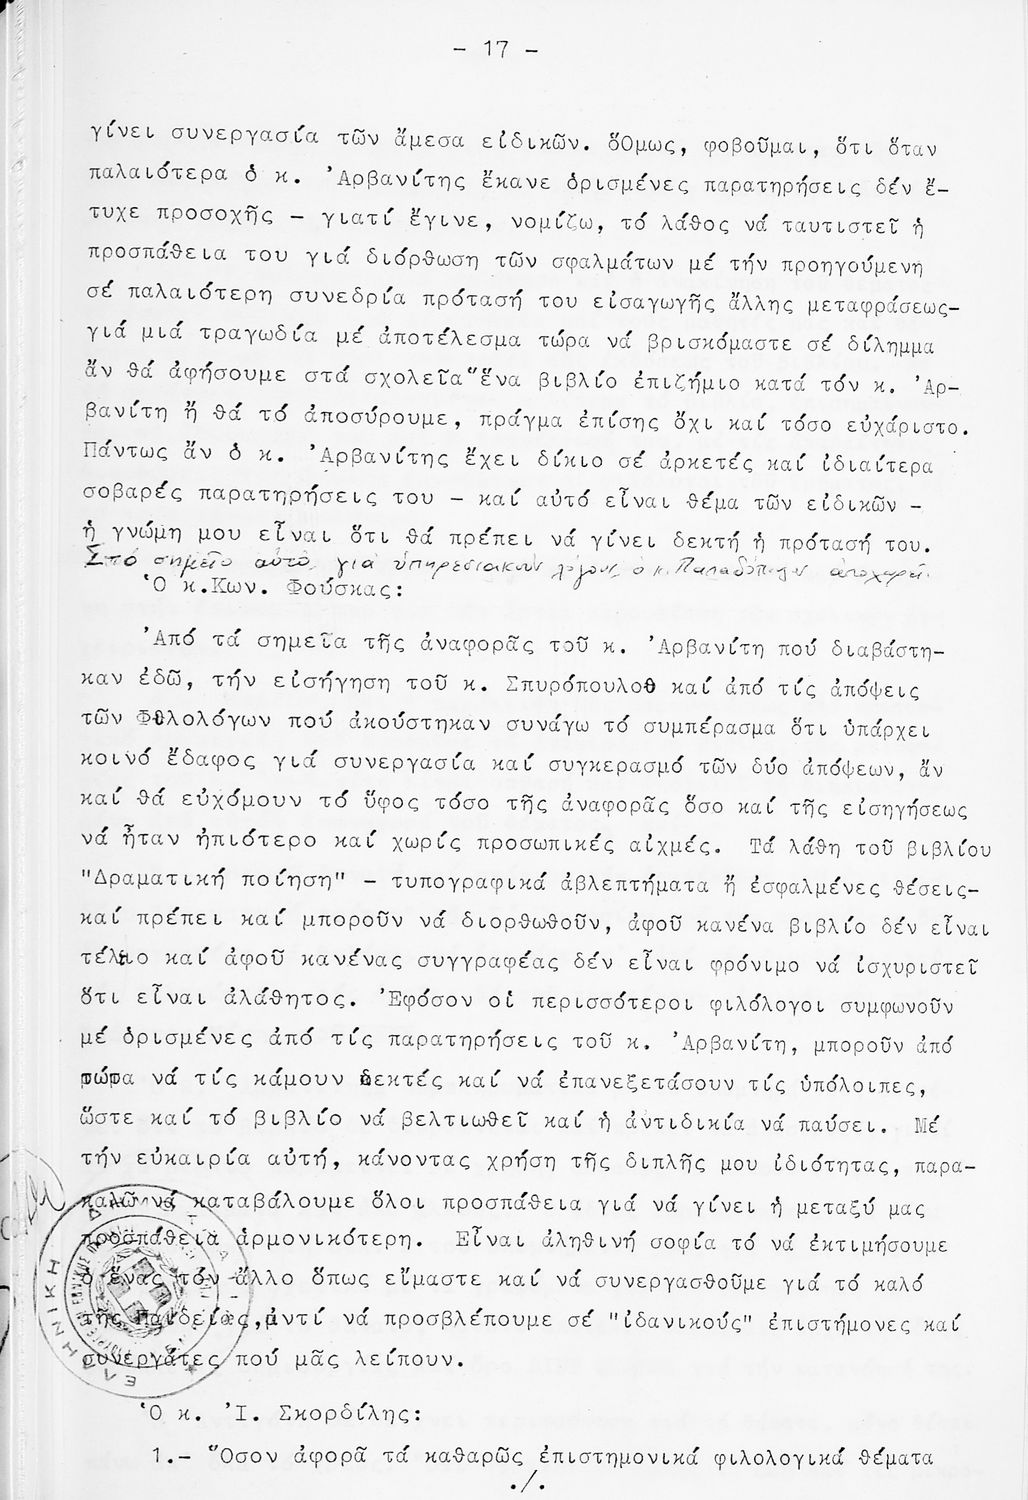 - 17 -
γίνει συνεργασία τῶν ἄμεσα εἰδικῶν. ὍΟμως, φοβοῦμαι, ὅτι ὅταν
παλαιότερα ὁ κ. Ἀρβανίτης ἔκανε ὁρισμένες παρατηρήσεις δέν ἔ-
τυχε προσοχῆς - γιατί ἔγινε, νομίζω, τό λάθος νά ταυτιστεῖ ἡ
προσπάθεια του γιά διόρθωση τῶν σφαλμάτων μέ τήν προηγούμενη
σέ παλαιότερη συνεδρία πρότασή του εἰσαγωγῆς ἄλλης μεταφράσεως-
γιά μιά τραγωδία μέ ἀποτέλεσμα τώρα νά βρισκόμαστε σέ δίλημμα
ἄν θά ἀφήσουμε στά σχολεῖα ἕνα βιβλίο ἐπιζήμιο κατά τόν κ. Ἀρ-
βανίτη ἤ θά τό ἀποσύρουμε, πράγμα ἐπίσης ὄχι καί τόσο εὐχάριστο.
Πάντως ἄν ὁ κ. Ἀρβανίτης ἔχει δίκιο σέ ἀρκετές καί ἰδιαίτερα
σοβαρές παρατηρήσεις του - καί αὐτό εἶναι θέμα τῶν εἰδικῶν -
ἡ γνώμη μου εἶναι ὅτι θά πρέπει νά γίνει δεκτή ἡ πρότασή του.
Στό σημεῖο αὐτό, γιά ὑπηρεσιακούς λόγους, ὁ κ. Παπαδόπουλος ἀποχωρεῖ.
Ὁ κ.Κων. Φούσκας:
Ἀπό τά σημεῖα τῆς ἀναφορᾶς τοῦ κ. Ἀρβανίτη πού διαβάστη-
καν ἐδῶ, τήν εἰσήγηση τοῦ κ. Σπυρόπουλου καί ἀπό τίς ἀπόψεις
τῶν Φιλολόγων πού ἀκούστηκαν συνάγω τό συμπέρασμα ὅτι ὑπάρχει
κοινό ἔδαφος γιά συνεργασία καί συγκερασμό τῶν δύο ἀπόψεων, ἄν
καί θά εὐχόμουν τό ὕφος τόσο τῆς ἀναφορᾶς ὅσο καί τῆς εἰσηγήσεως
νά ἦταν ἠπιότερο καί χωρίς προσωπικές αἰχμές. Τά λάθη τοῦ βιβλίου
"Δραματική ποίηση" - τυπογραφικά ἀβλεπτήματα ἤ ἐσφαλμένες θέσεις-
καί πρέπει καί μποροῦν νά διορθωθοῦν, ἀφοῦ κανένα βιβλίο δέν εἶναι
τέλειο καί ἀφοῦ κανένας συγγραφέας δέν εἶναι φρόνιμο νά ἰσχυριστεῖ
ὅτι εἶναι ἀλάθητος. Ἐφόσον οἱ περισσότεροι φιλόλογοι συμφωνοῦν
μέ ὁρισμένες ἀπό τίς παρατηρήσεις τοῦ κ. Ἀρβανίτη, μποροῦν ἀπό
τώρα νά τίς κάμουν δεκτές καί νά ἐπανεξετάσουν τίς ὑπόλοιπες,
ὥστε καί τό βιβλίο νά βελτιωθεῖ καί ἡ ἀντιδικία νά παύσει. Μέ
τήν εὐκαιρία αὐτή, κάνοντας χρήση τῆς διπλῆς μου ἰδιότητας, παρα-
καλῶ νά καταβάλουμε ὅλοι προσπάθεια γιά νά γίνει ἡ μεταξύ μας
προσπάθεια ἁρμονικότερη. Εἶναι ἀληθινή σοφία τό νά ἐκτιμήσουμε
ὁ ἕνας τόν ἄλλο ὅπως εἴμαστε καί νά συνεργασθοῦμε γιά τό καλό
τῆς Παιδείας, ἀντί νά προσβλέπουμε σέ "ἰδανικούς" ἐπιστήμονες καί
συνεργάτες πού μᾶς λείπουν.
ΕΛΛΗΝΙΚΗ
Ὁ κ. Ἰ. Σκορδίλης:
1.- Ὅσον ἀφορᾶ τά καθαρῶς ἐπιστημονικά φιλολογικά θέματα
./.